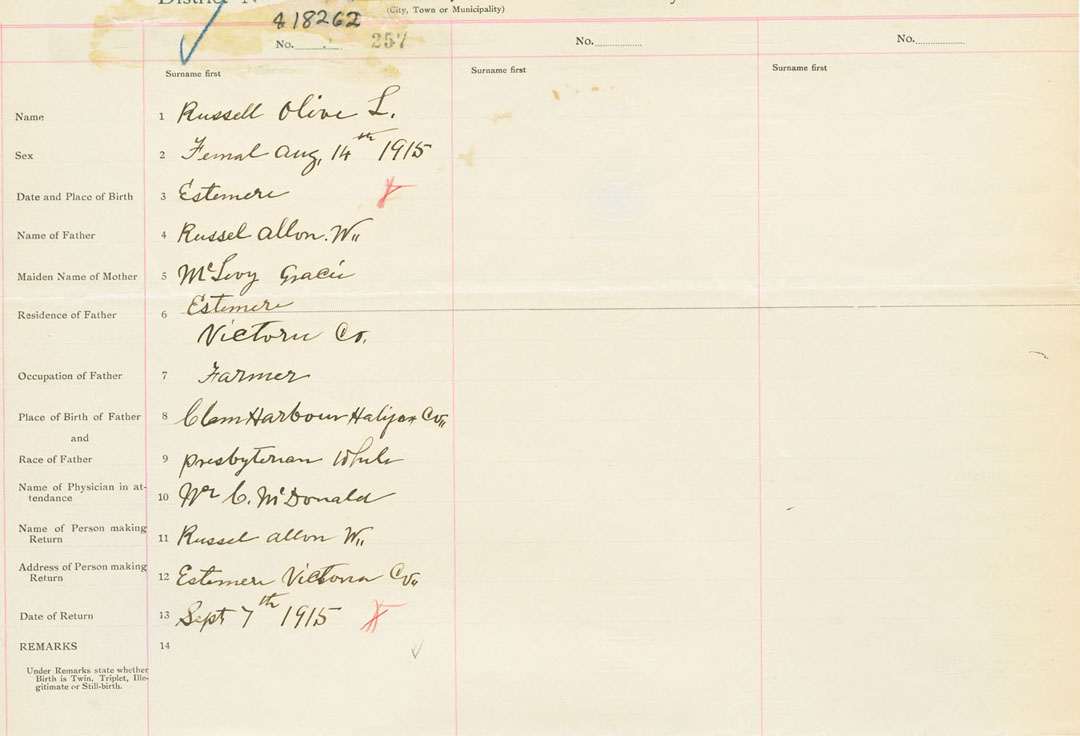 (City, Town or Municipality)
418262
No. 257 No. No.
Surname first Surname first Surname first
Name 1 Russell Olive L.
Sex 2 Femal Aug, 14th 1915
Date and Place of Birth 3 Estemere
Name of Father 4 Russel allon. W,,
Maiden Name of Mother 5 Mc Gracie
Residence of Father 6 Estemere
Co.
Occupation of Father 7 Farmer
Place of Birth of Father 8 Clam Harbour Halifax Co,,
and
Race of Father 9 Presbyterian White
Name of Physician in at-
tendance 10 C. McDonald
Name of Person making
Return 11 Russel allon W,,
Address of Person making
Return 12 Estemere Victoria Co,,
Date of Return 13 Sept 7th 1915
REMARKS 14
Under Remarks state whether
Birth is Twin, Triplet, Ille-
gitimate or Still-birth.